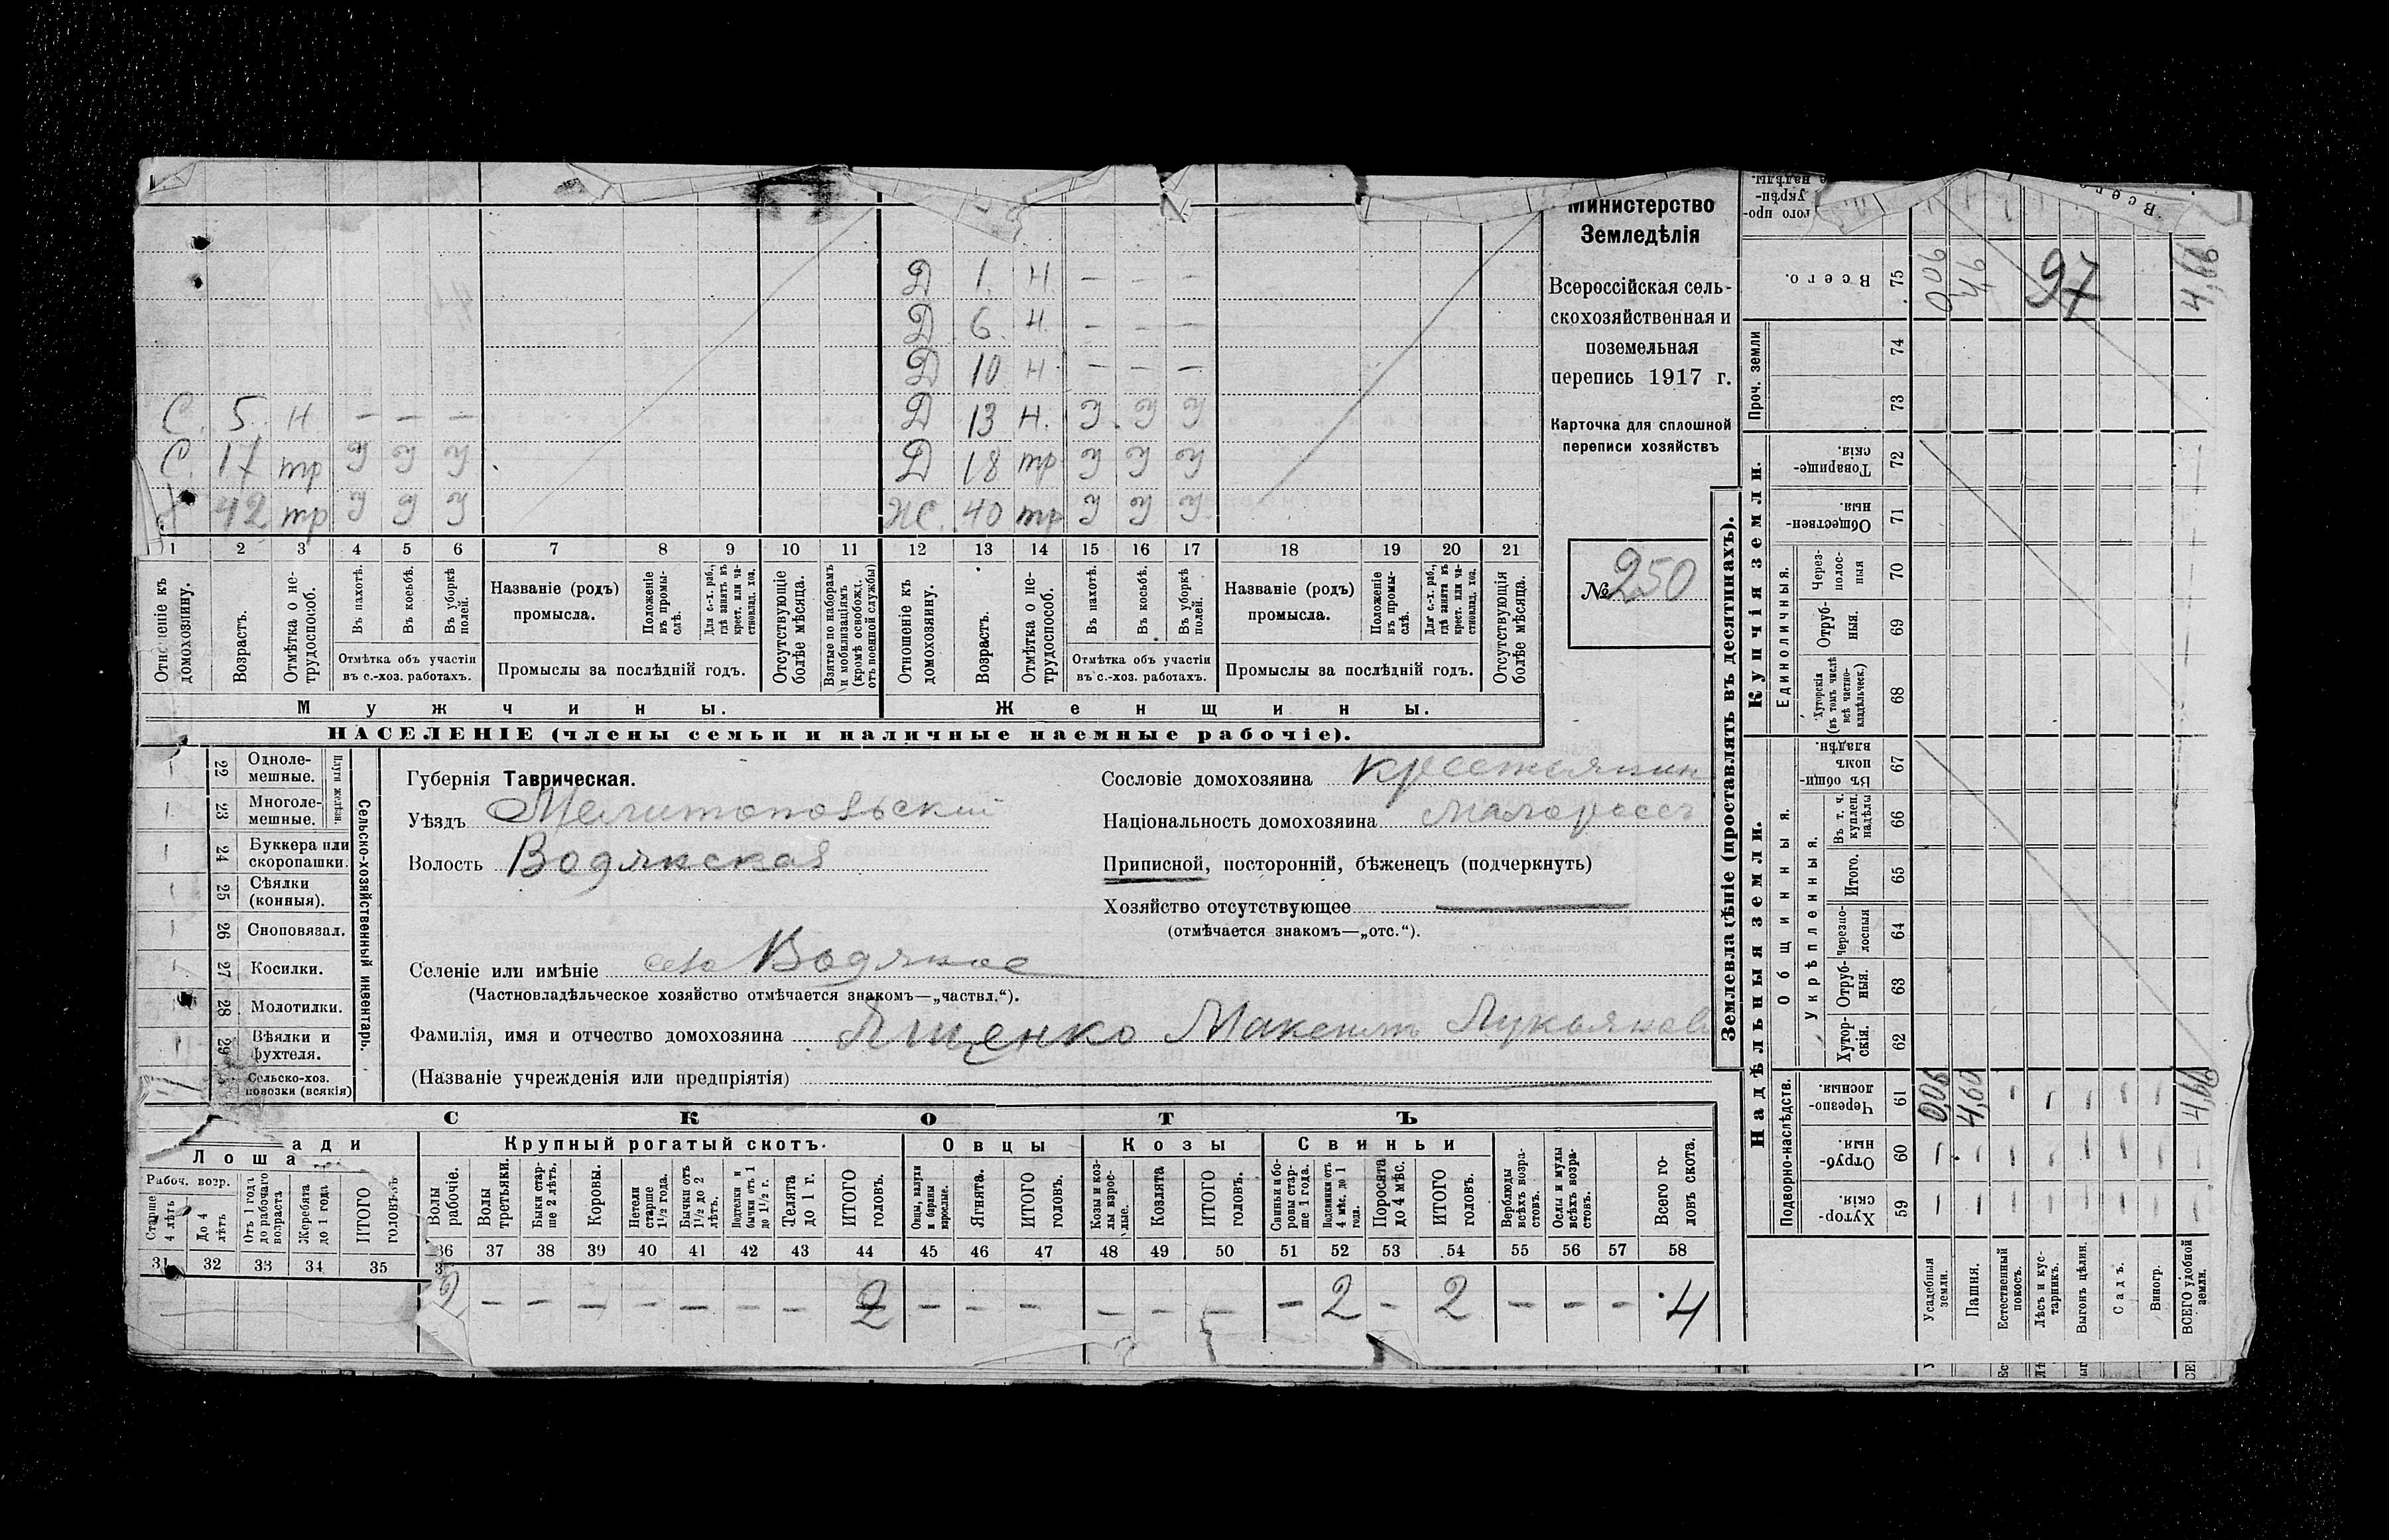 Министерство
Земледѣлія
Всероссійская сель-
скохозяйственная и
поземельная
перепись 1917 г.
Карточка для сплошной
переписи хозяйствъ
№ 250
Д 1. Н. — — —
Д 6. Н. — — —
Д 10 Н. — — —
С. 5. Н. — — — Д 13 Н. У У У
С. 17 тр У У У Д 18 тр У У У
42 тр У У У Ж. 40 тр У У У
1 2 3 4 5 6 7 8 9 10 11 12 13 14 15 16 17 18 19 20 21
Отношеніе къ домохозяину.
Возрастъ.
Отмѣтка о не-трудоспособ.
Въ пахотѣ.
Въ косьбѣ.
Въ уборкѣ полей.
Отмѣтка объ участіи въ с.-хоз. работахъ.
Названіе (родъ) промысла.
Положеніе въ промы-слѣ.
Для с.-х. раб., гдѣ занятъ въ крест. или ча-стновлад. хоз.
Промыслы за послѣдній годъ.
Отсутствующіе болѣе мѣсяца.
Взятые по наборамъ и мобилизаціямъ (кромѣ освобожд. отъ военной службы)
Отношеніе къ домохозяину.
Возрастъ.
Отмѣтка о не-трудоспособ.
Въ пахотѣ.
Въ косьбѣ.
Въ уборкѣ полей.
Отмѣтка объ участіи въ с.-хоз. работахъ.
Названіе (родъ) промысла.
Положеніе въ промы-слѣ.
Для с.-х. раб., гдѣ занята въ крест. или ча-стновлад. хоз.
Промыслы за послѣдній годъ.
Отсутствующія болѣе мѣсяца.
Мужчины. Женщины.
НАСЕЛЕНІЕ (члены семьи и наличные наемные рабочіе).
Сельско-хозяйственный инвентарь.
Плуги желѣзн.
22 Одноле-мешные.
23 Многоле-мешные.
24 Буккера или скоропашки.
25 Сѣялки (конныя).
26 Сноповязал.
27 Косилки.
28 Молотилки.
29 Вѣялки и фухтеля.
Сельско-хоз. повозки (всякія)
Губернія Таврическая.
Уѣздъ Мелитопольскій
Волость Водянская
Селеніе или имѣніе село Водяное
(Частновладѣльческое хозяйство отмѣчается знакомъ—„частвл.“).
Фамилія, имя и отчество домохозяина Ященко Максимъ Лукьянов
(Названіе учрежденія или предпріятія)
Сословіе домохозяина крестьянин
Національность домохозяина малороссъ
Приписной, посторонній, бѣженецъ (подчеркнуть)
Хозяйство отсутствующее —
(отмѣчается знакомъ—„отс.“).
СКОТЪ
Лошади Крупный рогатый скотъ. Овцы Козы Свиньи
Рабоч. возр.
Старше 4 лѣтъ
До 4 лѣтъ
Отъ 1 года до рабочаго возраста
Жеребята до 1 года
ИТОГО головъ.
Волы рабочіе.
Волы третьяки.
Быки стар-ше 2 лѣтъ.
Коровы.
Нетели старше 1½ года.
Бычки отъ 1½ до 2 лѣтъ.
Подтелки и бычки отъ 1 до 1½ г.
Телята до 1 г.
ИТОГО головъ.
Овцы, валухи и бараны взрослые.
Ягнята.
ИТОГО головъ.
Козы и коз-лы взрос-лые.
Козлята
ИТОГО головъ.
Свиньи и бо-ровы стар-ше 1 года.
Подсвинки отъ 4 мѣс. до 1 года.
Поросята до 4 мѣс.
ИТОГО головъ.
Верблюды всѣхъ возра-стовъ.
Ослы и мулы всѣхъ возра-стовъ.
Всего го-ловъ скота.
31 32 33 34 35 36 37 38 39 40 41 42 43 44 45 46 47 48 49 50 51 52 53 54 55 56 57 58
2 — — — — — — — 2 — — — — — — — 2 — 2 — — — 4
Землевладѣніе (проставлять въ десятинахъ).
Надѣльныя земли. Купчія земли.
Проч. земли
Подворно-наслѣдств.
Общинныя.
Укрѣпленныя.
Единоличныя.
Всего. 75 0,06 4,6 97 4,66
74
73
Товарище-скія. 72
Обществен-ныя. 71
Через-полос-ныя 70
Отруб-ныя. 69
Хуторскія (въ томъ числѣ всѣ частно-владѣльческ.) 68
Въ общи-номъ владѣн. 67
Въ т. ч. куплен. надѣлы 66
Итого. 65
Черезпо-лосныя 64
Отруб-ныя. 63
Хутор-скія. 62
Черезпо-лосныя. 61 0,06 4,60 4,66
Отруб-ныя. 60
Хутор-скія. 59
Усадебныя земли.
Пашня.
Естественный покосъ.
Лѣсъ и кус-тарникъ.
Выгонъ цѣлин.
Садъ.
Виногр.
ВСЕГО удобной земли.